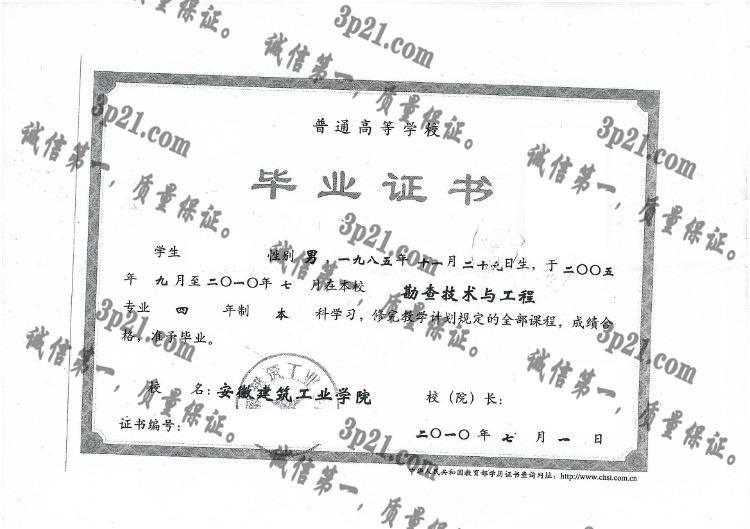 普通高等学校
毕业证书
学生 性别 男，一九八五年 十一月 二十九日生，于二〇〇五
年 九月至二〇一〇年 七 月在本校 勘查技术与工程
专业 四 年制 本 科学习，修完教学计划规定的全部课程，成绩合
格，准予毕业。
校 名：安徽建筑工业学院 校（院）长：
证书编号： 二〇一〇年 七 月 一 日
中华人民共和国教育部学历证书查询网址：http://www.chsi.com.cn
3p21.com
诚信第一，质量保证。
3p21.com
诚信第一，质量保证。
3p21.com
诚信第一，质量保证。
3p21.com
诚信第一，质量保证。
3p21.com
诚信第一，质量保证。
3p21.com
诚信第一，质量保证。
3p21.com
诚信第一，质量保证。